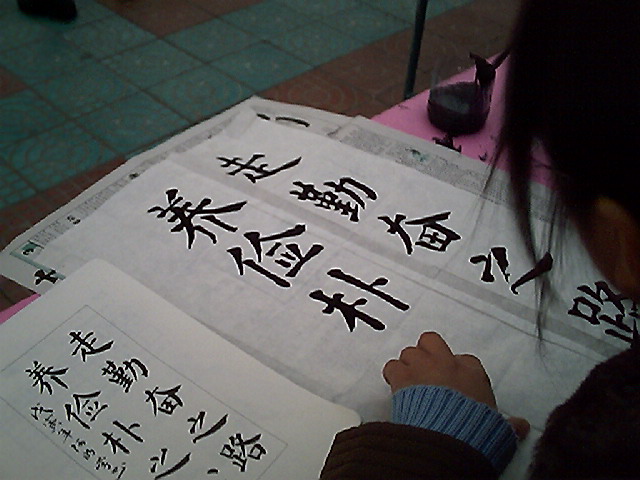 走勤奋之路
养俭朴
走勤奋之路
养俭朴之